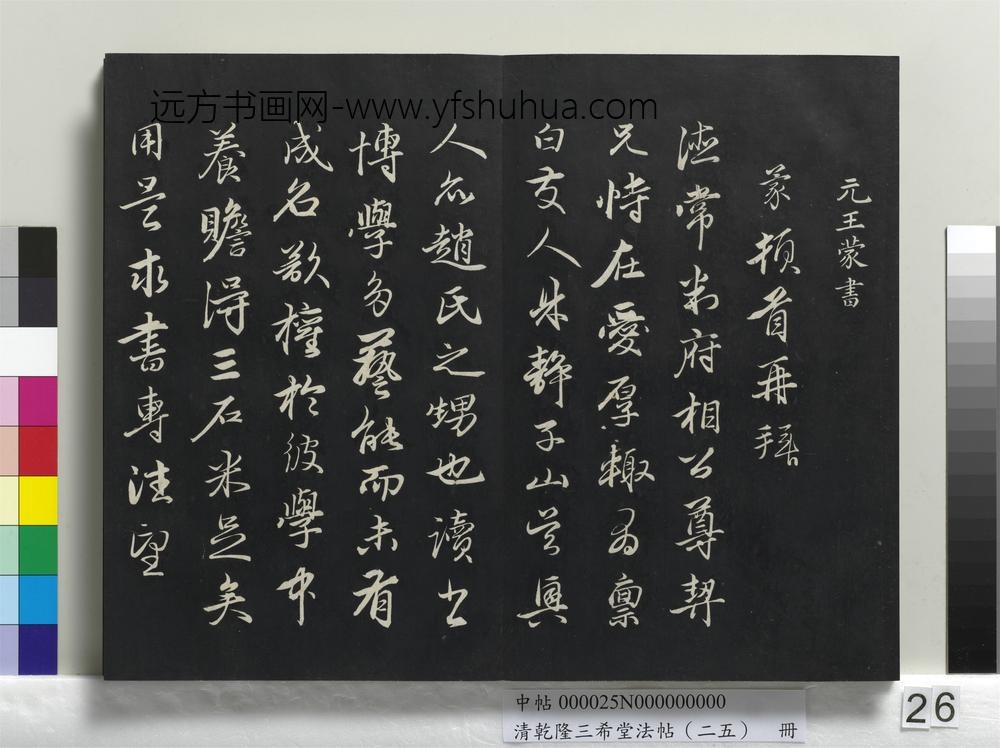 远方书画网-www.yfshuhua.com
元王蒙書
蒙頓首再拜
德常判府相公尊契
兄侍右愛厚輒為稟
白友人朱靜子山吳興
人亦趙氏之甥也讀書
博學多藝能而未有
成名欲權於彼學中
養贍得三石米足矣
用是求書專注望
中帖 000025N000000000
清乾隆三希堂法帖（二五） 冊
26